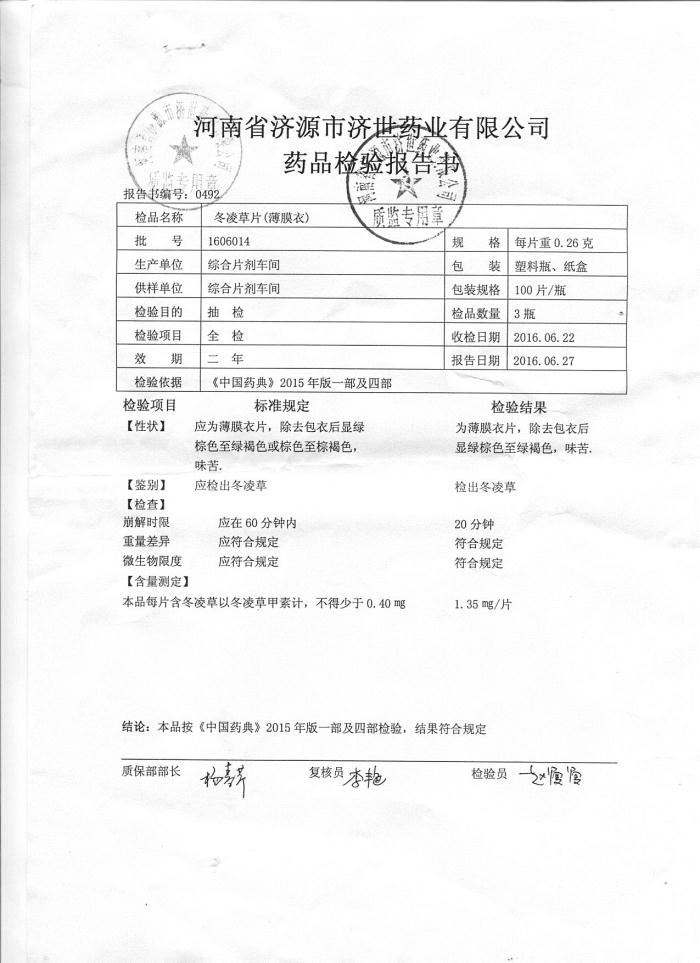 河南省济源市济世药业有限公司
药品检验报告书
质监专用章
河南省济源市济世药业有限公司
质监专用章
报告书编号：0492
检品名称 冬凌草片(薄膜衣)
批 号 1606014 规 格 每片重0.26克
生产单位 综合片剂车间 包 装 塑料瓶、纸盒
供样单位 综合片剂车间 包装规格 100片/瓶
检验目的 抽 检 检品数量 3瓶
检验项目 全 检 收检日期 2016.06.22
效 期 二 年 报告日期 2016.06.27
检验依据 《中国药典》2015年版一部及四部
检验项目 标准规定 检验结果
【性状】 应为薄膜衣片，除去包衣后显绿 为薄膜衣片，除去包衣后
棕色至绿褐色或棕色至棕褐色， 显绿棕色至绿褐色，味苦.
味苦.
【鉴别】 应检出冬凌草 检出冬凌草
【检查】
崩解时限 应在60分钟内 20分钟
重量差异 应符合规定 符合规定
微生物限度 应符合规定 符合规定
【含量测定】
本品每片含冬凌草以冬凌草甲素计，不得少于0.40㎎ 1.35㎎/片
结论：本品按《中国药典》2015年版一部及四部检验，结果符合规定
质保部部长 复核员 李艳 检验员